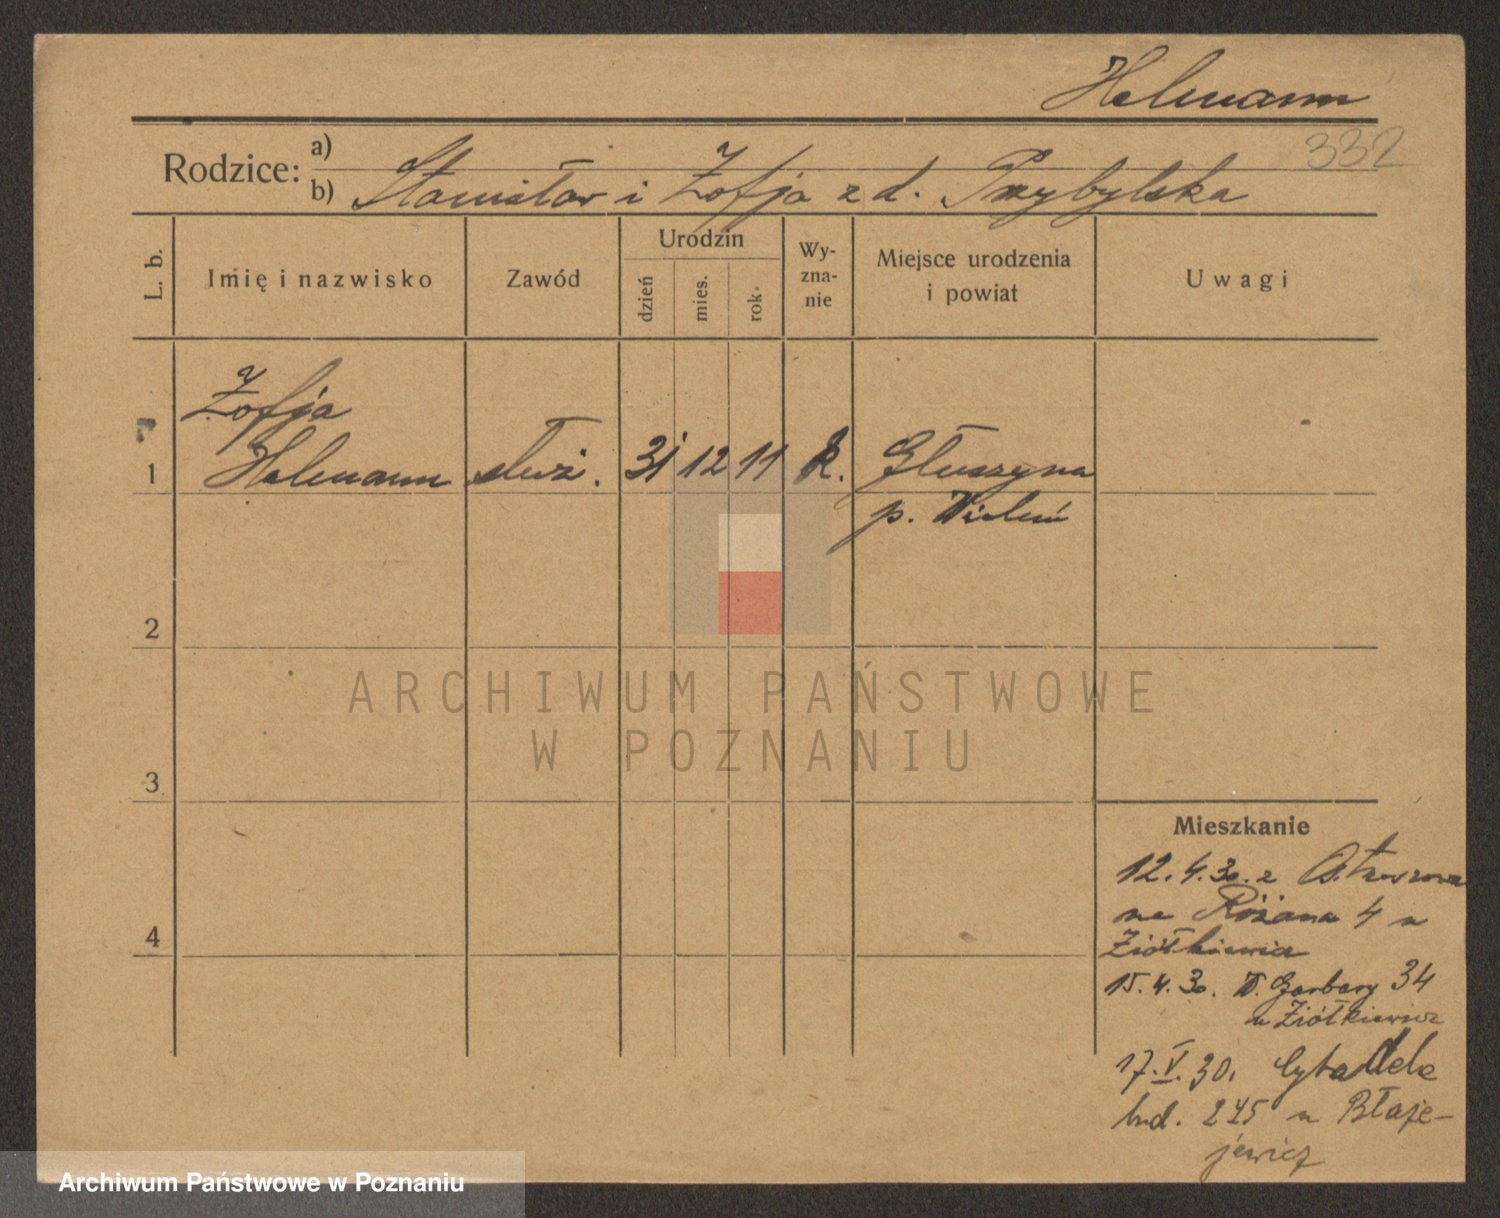 Helmann
332
Rodzice: a)
b) Stanisław i Zofja z d. Przybylska
L. b.
Imię i nazwisko
Zawód
Urodzin
dzień
mies.
rok
Wy-
zna-
nie
Miejsce urodzenia
i powiat
Uwagi
Zofja
1 Helmann służ. 31 12 11 k. Głuszyna
p. Wieluń
2
3
4
ARCHIWUM PAŃSTWOWE
W POZNANIU
Mieszkanie
12.4.30. z Ostrzeszowa
na Różana 4 u
Ziółkiewicz
15.4.30. W. Garbary 34
u Ziółkiewicz
17.V.30. Cytadela
bud. 245 u Błaże-
jewicz
Archiwum Państwowe w Poznaniu